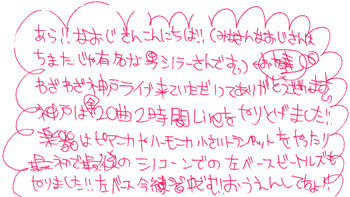 あら!!なおじさんこんにちは!!(みなさんなおじさんは
ちまたじゃ有名な男シラーさんですっ)お時
わざわざ神戸ライブ来ていただいてありがとうございます
神戸は⑨20曲2時間Liveをやりとげました!!
楽器はピアニカやハーモニカ小さいトランペットをやったり
最初で最後のシリコーンでの左ベースビートルズも
やりました!!左ベース今練習中だむ!!おうえんしてねっ!?